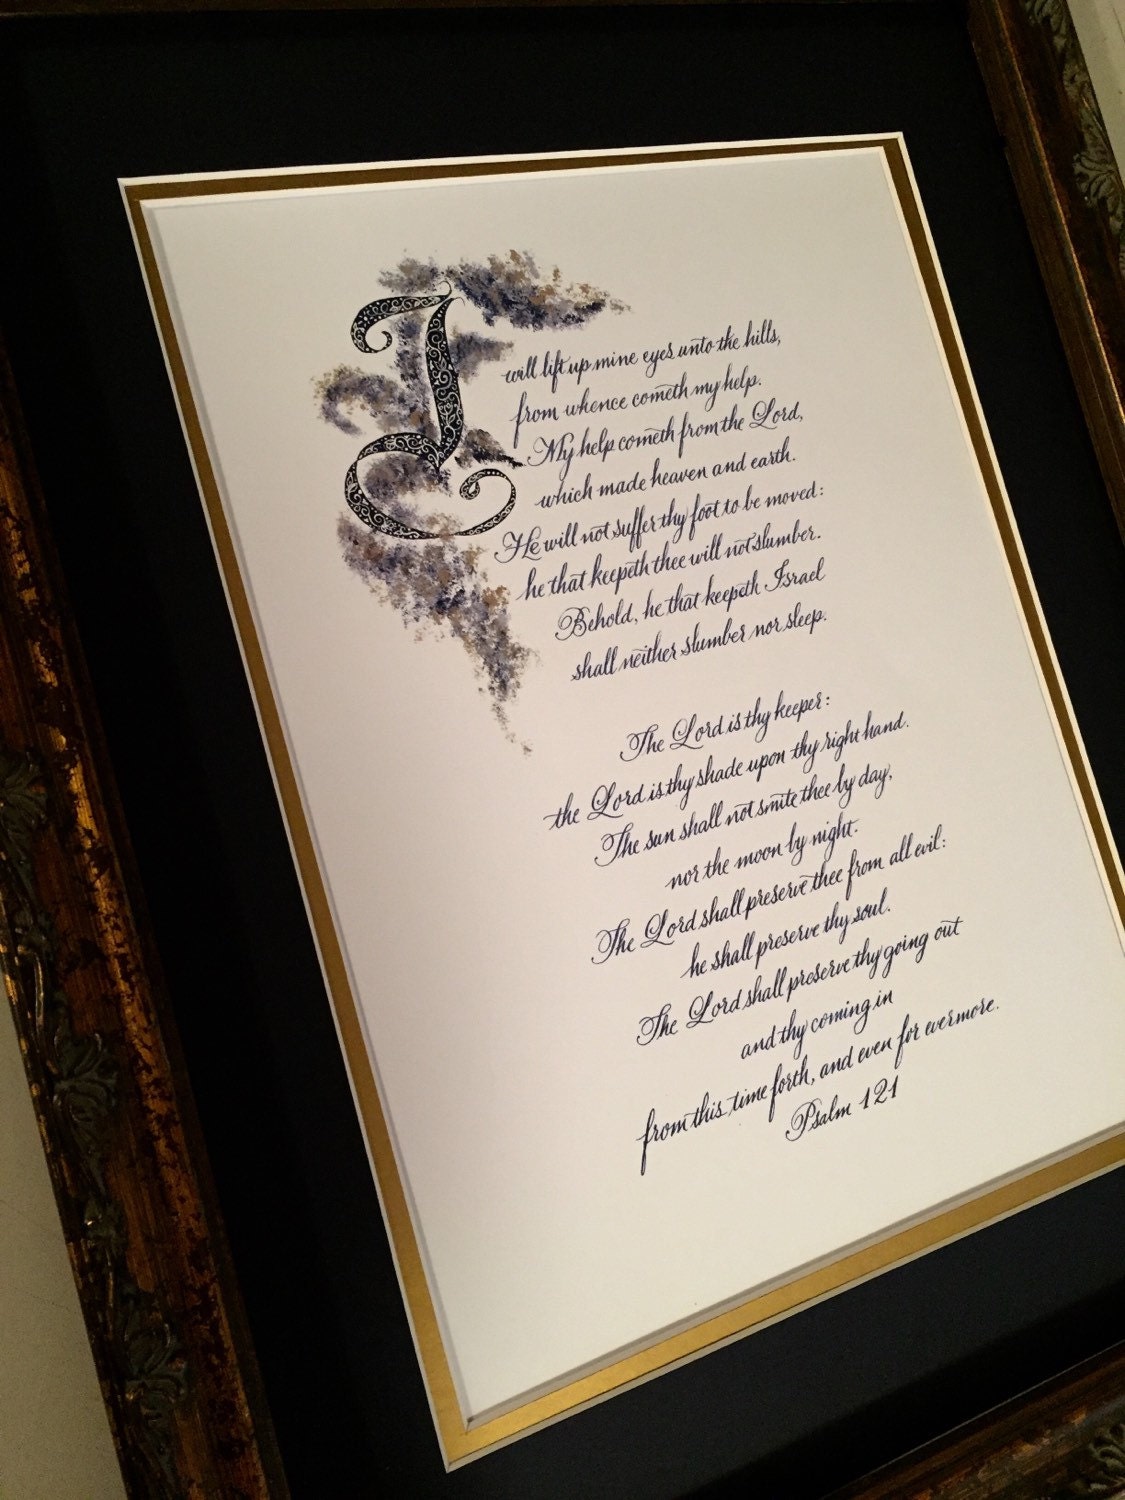 I will lift up mine eyes unto the hills,
from whence cometh my help.
My help cometh from the Lord,
which made heaven and earth.
He will not suffer thy foot to be moved:
he that keepeth thee will not slumber.
Behold, he that keepeth Israel
shall neither slumber nor sleep.
The Lord is thy keeper:
the Lord is thy shade upon thy right hand.
The sun shall not smite thee by day,
nor the moon by night.
The Lord shall preserve thee from all evil:
he shall preserve thy soul.
The Lord shall preserve thy going out
and thy coming in
from this time forth, and even for evermore.
Psalm 121